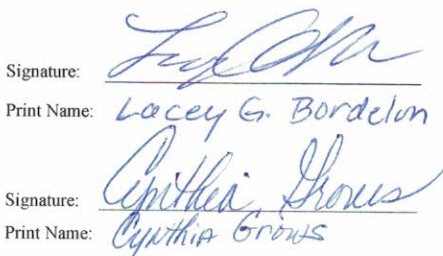 Signature:
Print Name: Lacey G. Bordelon
Signature: Cynthia Grows
Print Name: Cynthia Grows